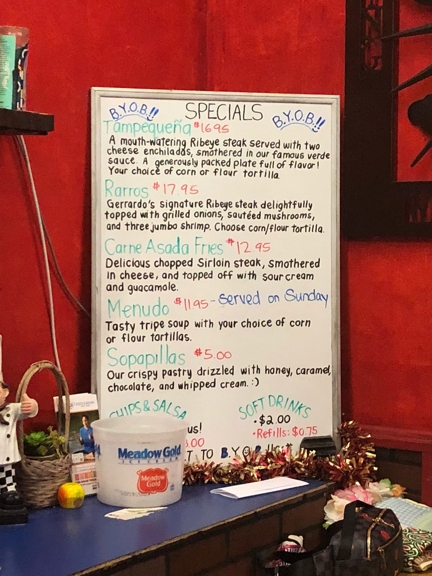 B.Y.O.B!! SPECIALS B.Y.O.B!!
Tampequeña $16.95
A mouth-watering Ribeye steak served with two
cheese enchiladas, smothered in our famous verde
sauce. A generously packed plate full of flavor!
Your choice of corn or flour tortilla.
Rarros $17.95
Gerrardo's signature Ribeye steak delightfully
topped with grilled onions, sautéed mushrooms,
and three jumbo shrimp. Choose corn/flour tortilla.
Carne Asada Fries $12.95
Delicious chopped Sirloin steak, smothered
in cheese, and topped off with sour cream
and guacamole.
Menudo $11.95 - Served on Sunday
Tasty tripe soup with your choice of corn
or flour tortillas.
Sopapillas $5.00
Our crispy pastry drizzled with honey, caramel,
chocolate, and whipped cream. :)
CHIPS & SALSA
SOFT DRINKS
• $2.00
• Refills: $0.75
TO B.Y.O.B
Meadow Gold
Meadow
Gold